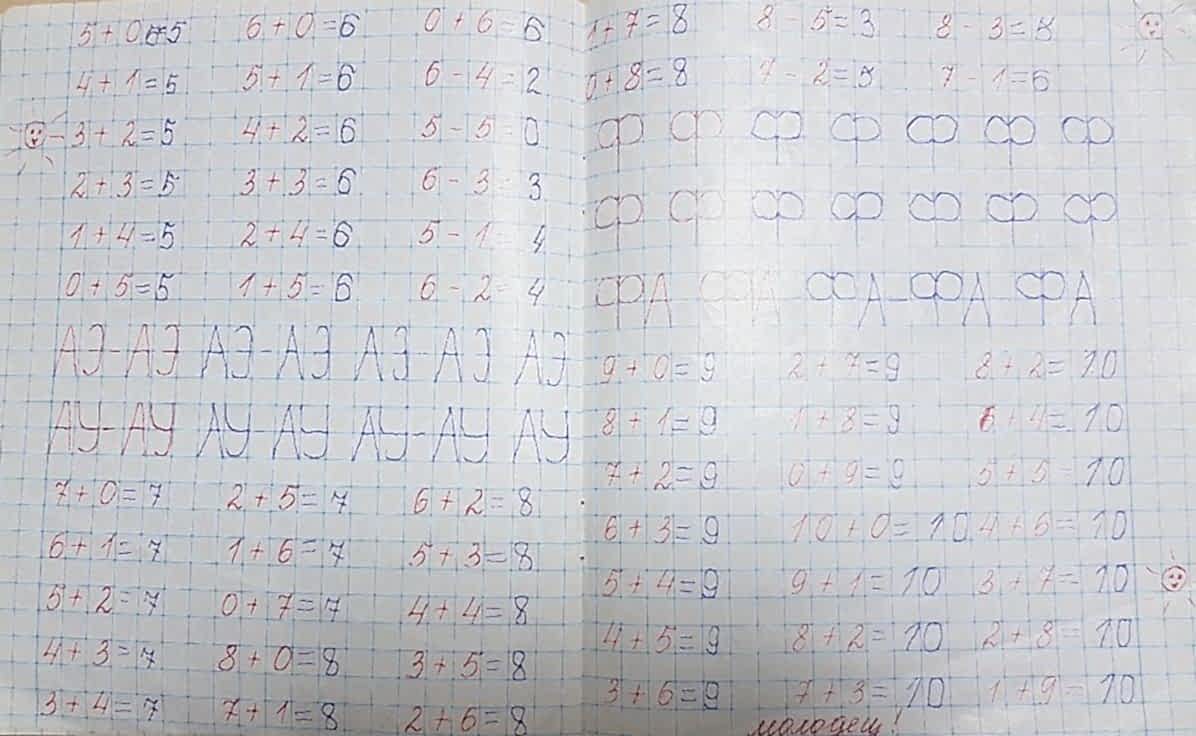 5+0=5 6+0=6 0+6=6
4+1=5 5+1=6 6-4=2
3+2=5 4+2=6 5-5=0
2+3=5 3+3=6 6-3=3
1+4=5 2+4=6 5-1=4
0+5=5 1+5=6 6-2=4
АЭ-АЭ АЭ-АЭ АЭ-АЭ АЭ
АУ-АУ АУ-АУ АУ-АУ АУ
7+0=7 2+5=7 6+2=8
6+1=7 1+6=7 5+3=8
5+2=7 0+7=7 4+4=8
4+3=7 8+0=8 3+5=8
3+4=7 7+1=8 2+6=8
1+7=8 8-5=3 8-3=5
0+8=8 7-2=5 7-1=6
Ф Ф Ф Ф Ф Ф Ф
Ф Ф Ф Ф Ф Ф Ф
ФА ФА ФА-ФА ФА
9+0=9 2+7=9 8+2=10
8+1=9 1+8=9 6+4=10
7+2=9 0+9=9 5+5=10
6+3=9 10+0=10 4+6=10
5+4=9 9+1=10 3+7=10
4+5=9 8+2=10 2+8=10
3+6=9 7+3=10 1+9=10
молодец!